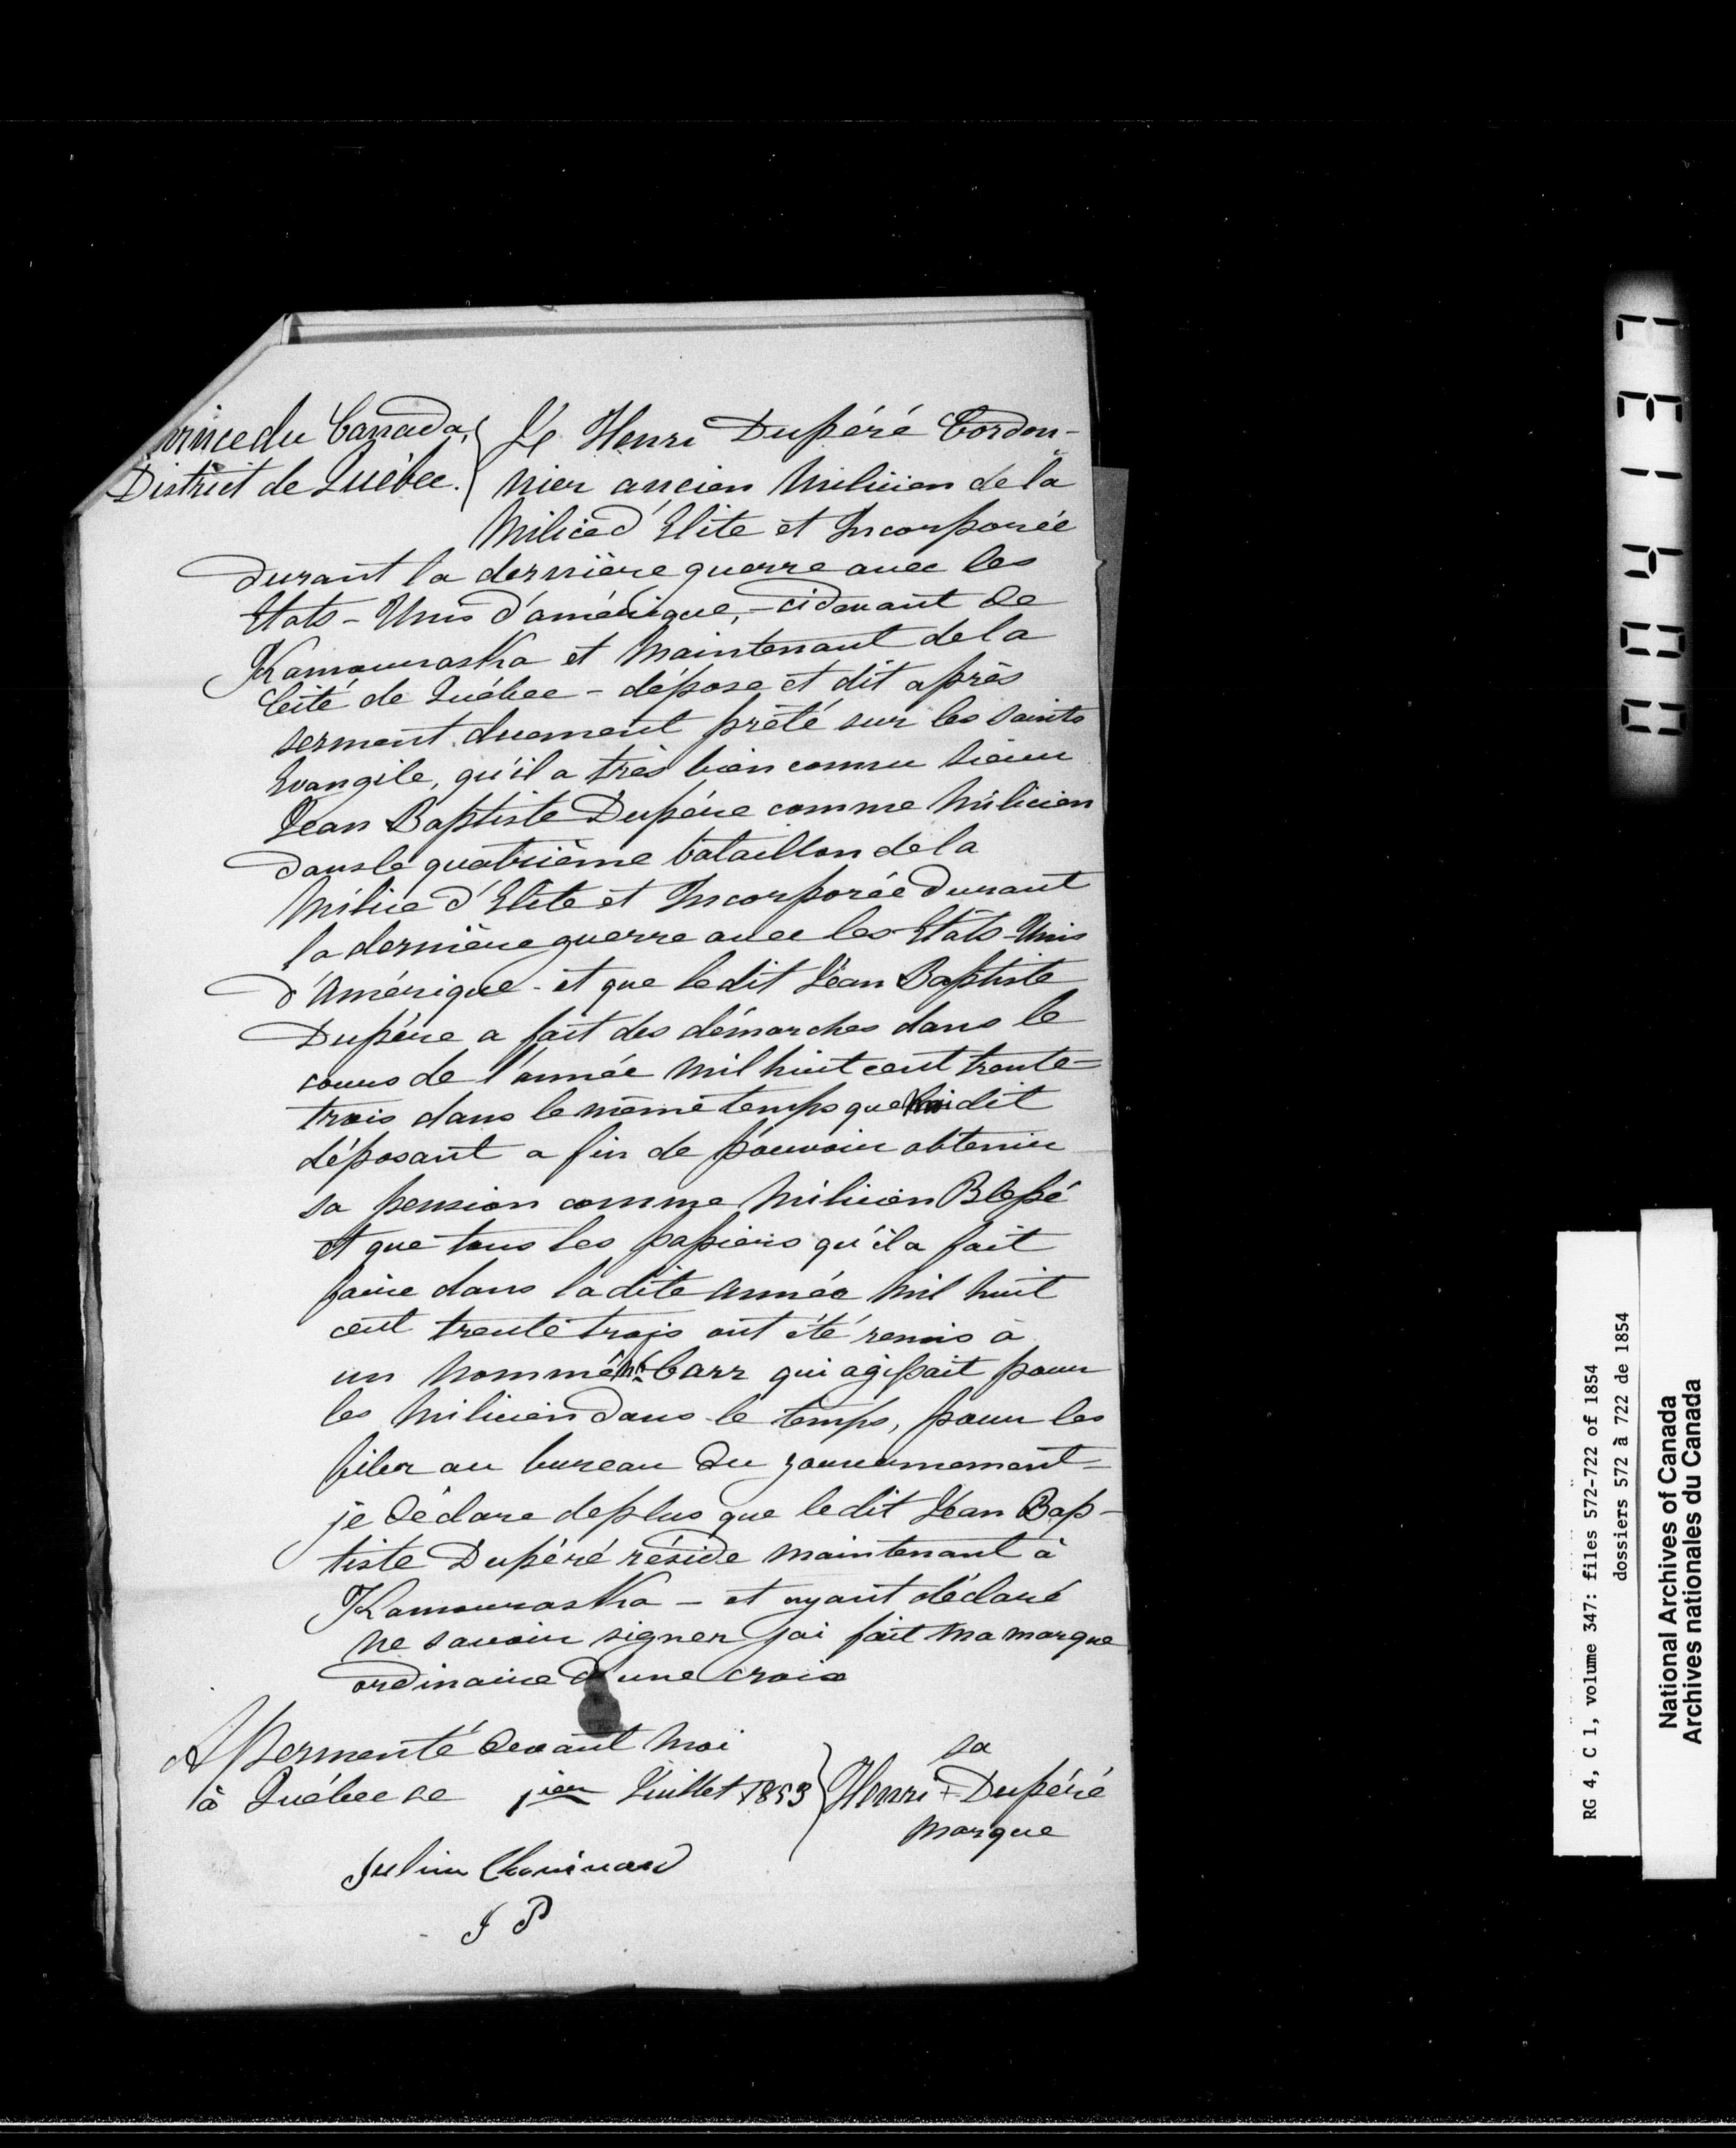 vince du Canada,
District de Québec.
Je Henri Dupéré Cordon-
nier ancien Milicien de la
Milice d'Elite et Incorporée
durant la dernière guerre avec les
Etats-Unis d'amérique, - cidevant de
Kamouraska et Maintenant de la
Cité de Québec - dépose et dit après
serment duement prêté sur les saints
Evangile, qu'il a très bien connu sieur
Jean Baptiste Dupére comme Milicien
dans le quatrième bataillon de la
Milice d'Elite et Incorporée durant
la dernière guerre avec les Etats-Unis
d'Amérique - et que ledit Jean Baptiste
Dupére a fait des démarches dans le
cours de l'année mil huit cent trente-
trois dans le même temps que dit
déposant a fin de pouvoir obtenir
sa pension comme Milicien Blessé
et que tous les papiers qu'il a fait
faire dans ladite année Mil huit
cent trente trois ont été remis à
un nommé Mr. Carr qui agissait pour
les Milicien dans le temps, pour les
filer au bureau du gouvernement -
je déclare deplus que ledit Jean Bap-
tiste Dupéré réside maintenant à
Kamouraska - et ayant déclaré
ne savoir signer j'ai fait ma marque
ordinaire d'une croix
Assermenté devant moi
à Québec ce 1ier Juillet 1853
sa
Henri + Dupéré
marque
Julien Chouinard
J P
RG 4, C 1, volume 347: files 572-722 of 1854
dossiers 572 à 722 de 1854
National Archives of Canada
Archives nationales du Canada